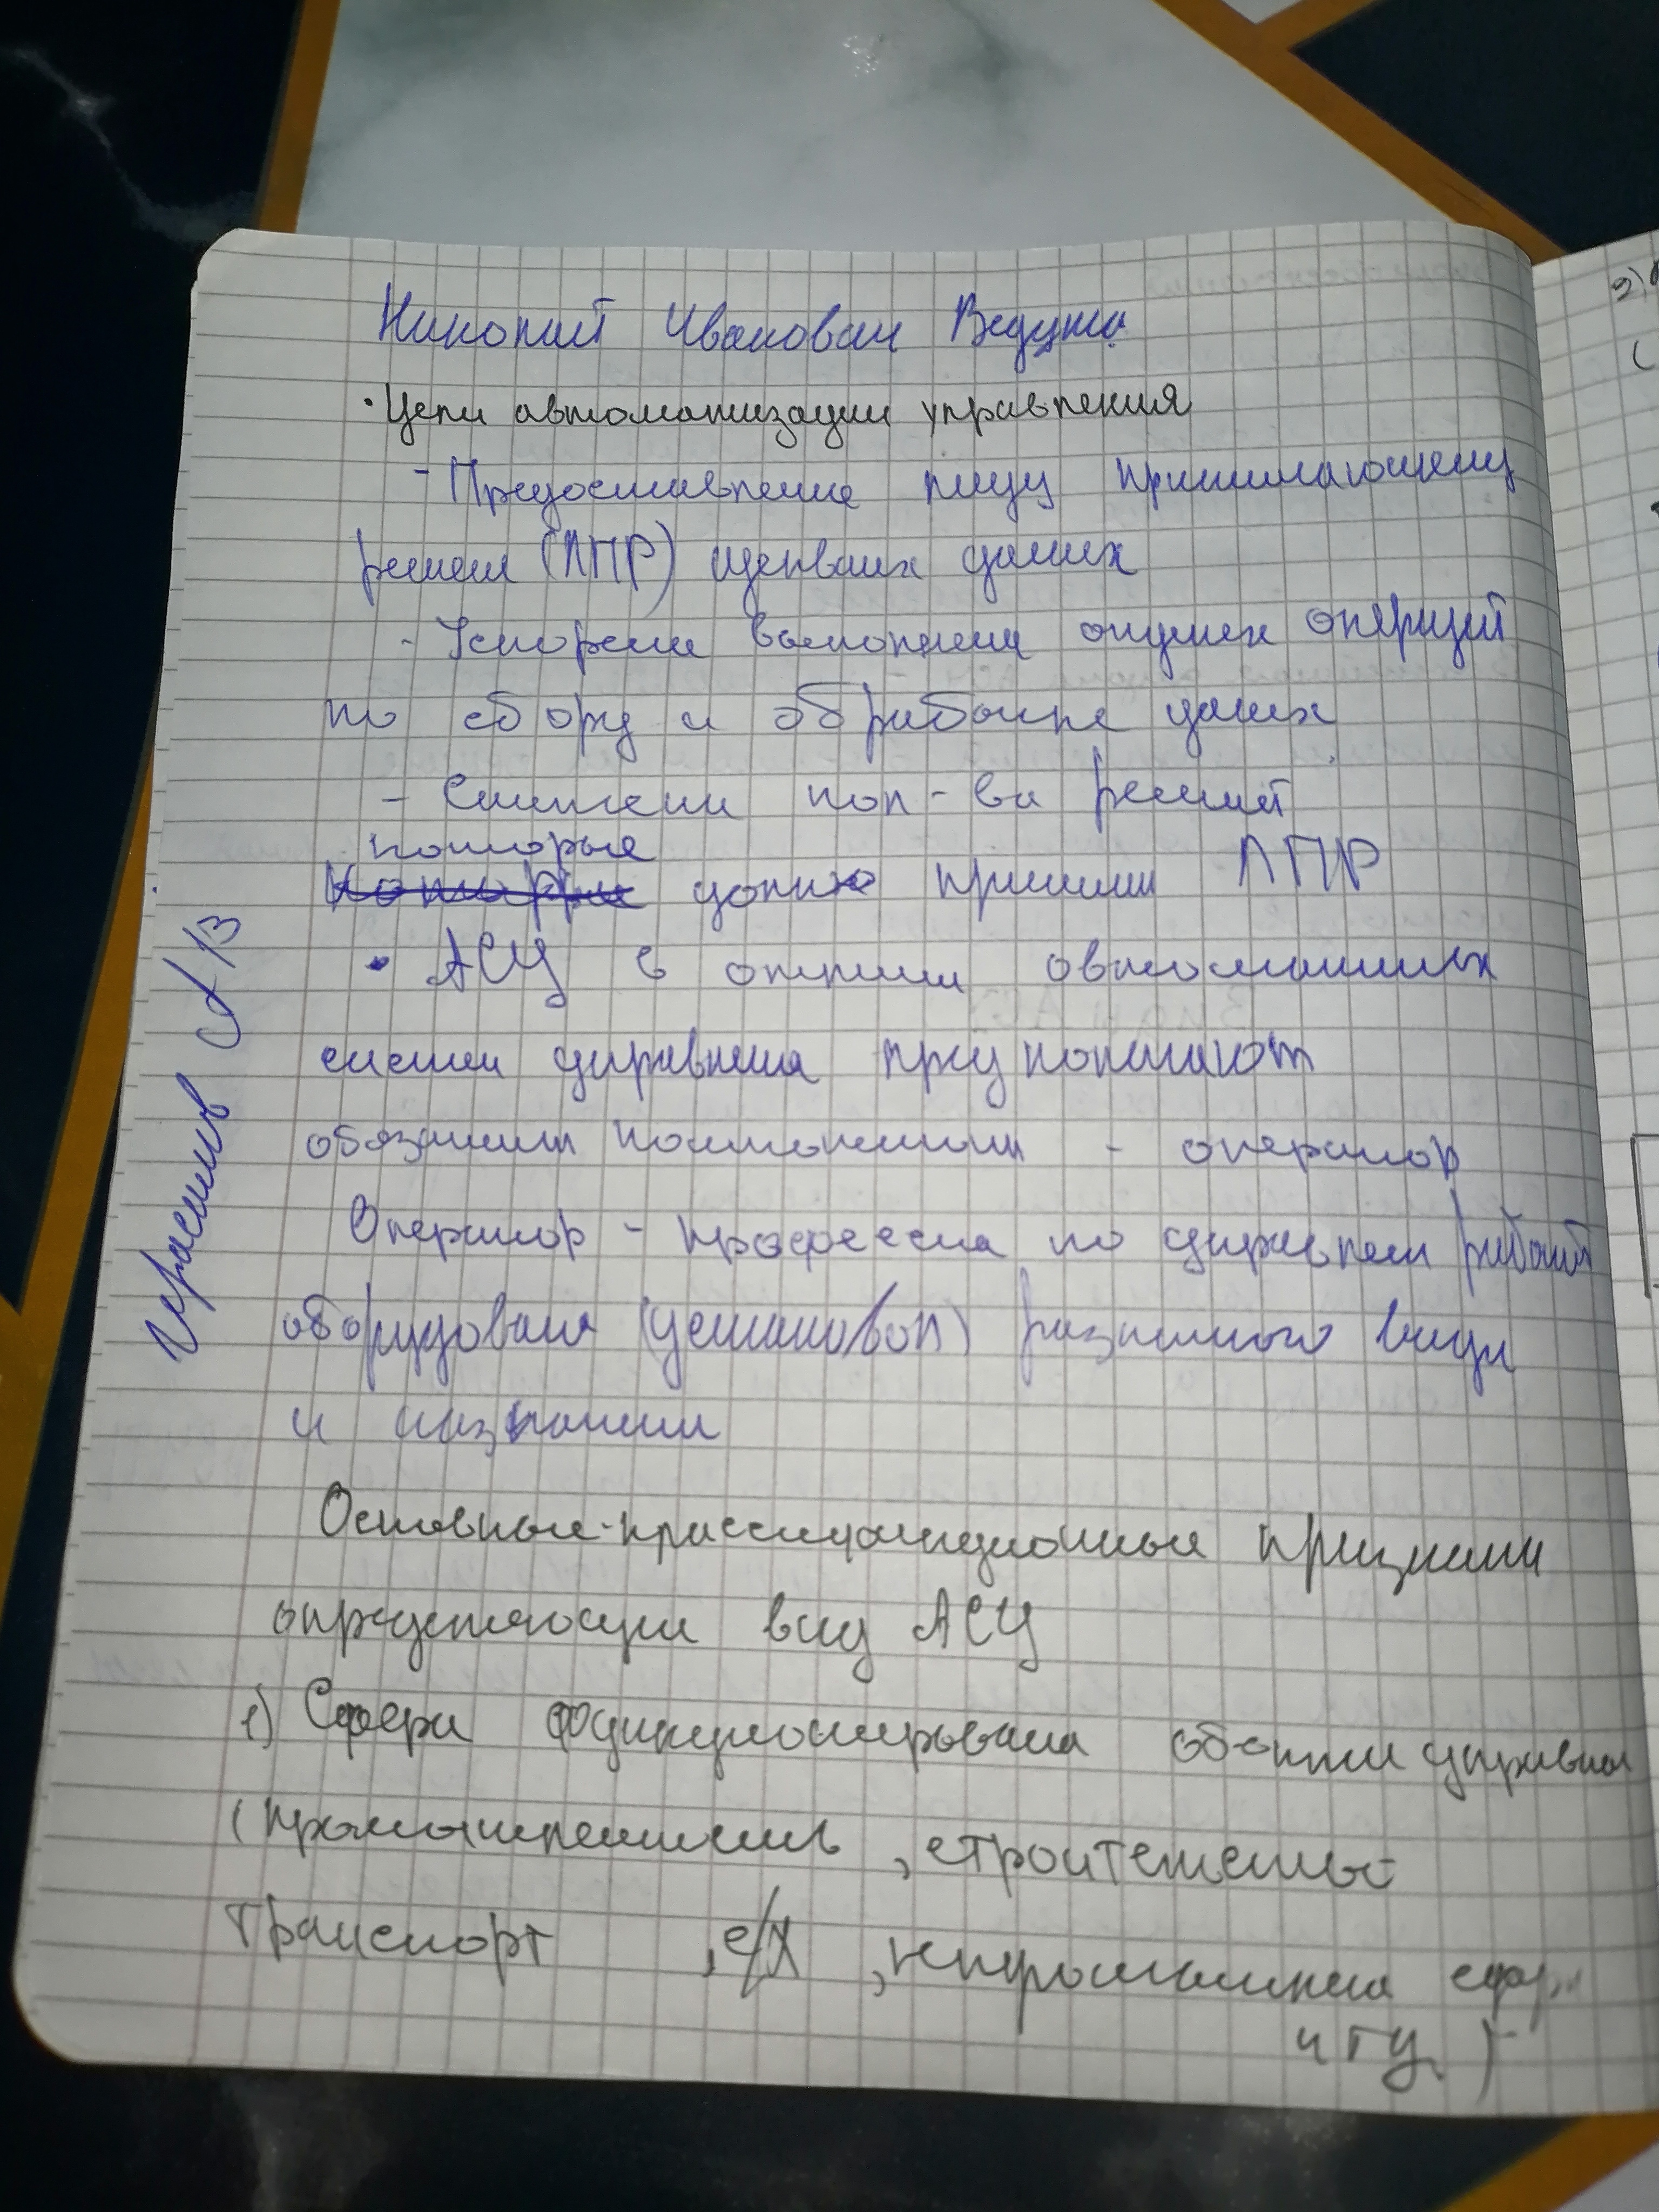 Николай Иванович Ведута
• Цели автоматизации управления
- Предоставление лицу принимающему
решение (ЛПР) данных
- Ускорение выполнения отдельных операций
по сбору и обработке данных
- Снижение кол-ва решений
которые
которые должно принимать ЛПР
• АСУ в отличии автоматических
систем управления предполагают
обязательный компонент - оператор
Оператор - профессия по управлению работой
оборудования (установок) различного вида
и назначения
Основные классификационные признаки
определяющие вид АСУ
1) Сфера функционирования объекта управления
(промышленность, строительство
транспорт, с/х, непромышленная сфера
и т д)
Герасимов А 13